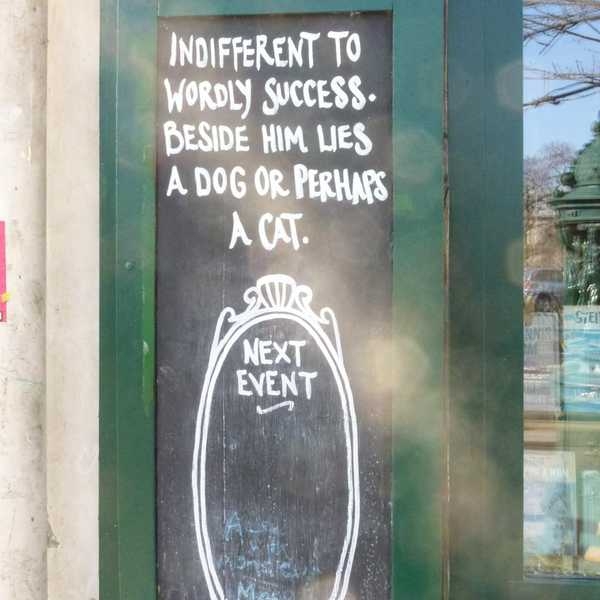 INDIFFERENT TO
WORDLY SUCCESS.
BESIDE HIM LIES
A DOG OR PERHAPS
A CAT.
NEXT
EVENT